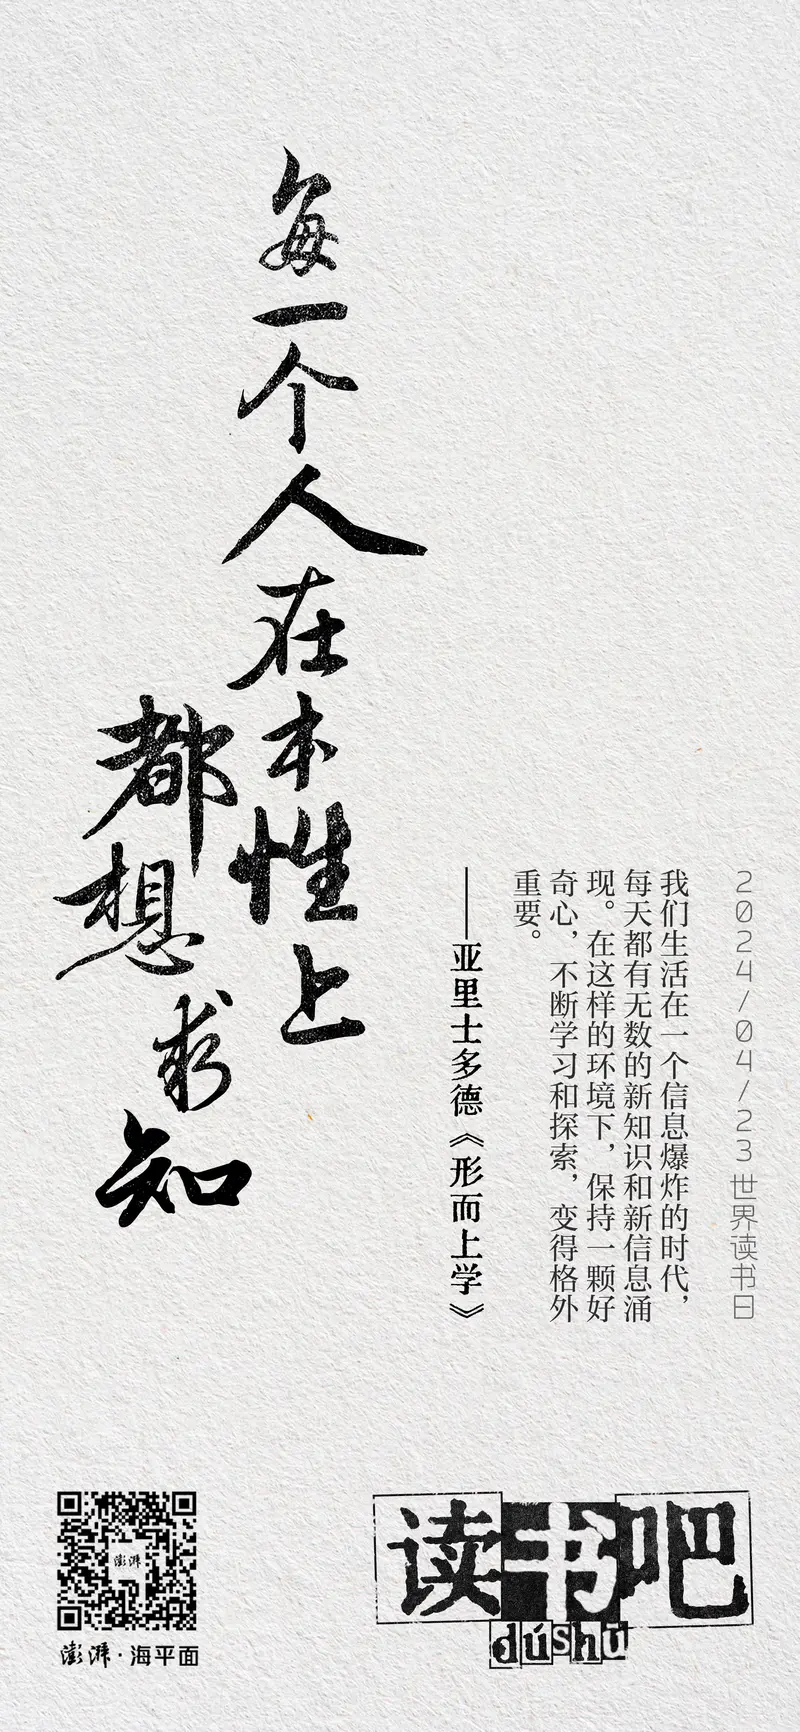 2024/04/23 世界读书日
我们生活在一个信息爆炸的时代，
每天都有无数的新知识和新信息涌
现。在这样的环境下，保持一颗好
奇心，不断学习和探索，变得格外
重要。
——亚里士多德《形而上学》
每一个人在本性上
都想求知
澎湃
澎湃·海平面
读书吧
dúshū